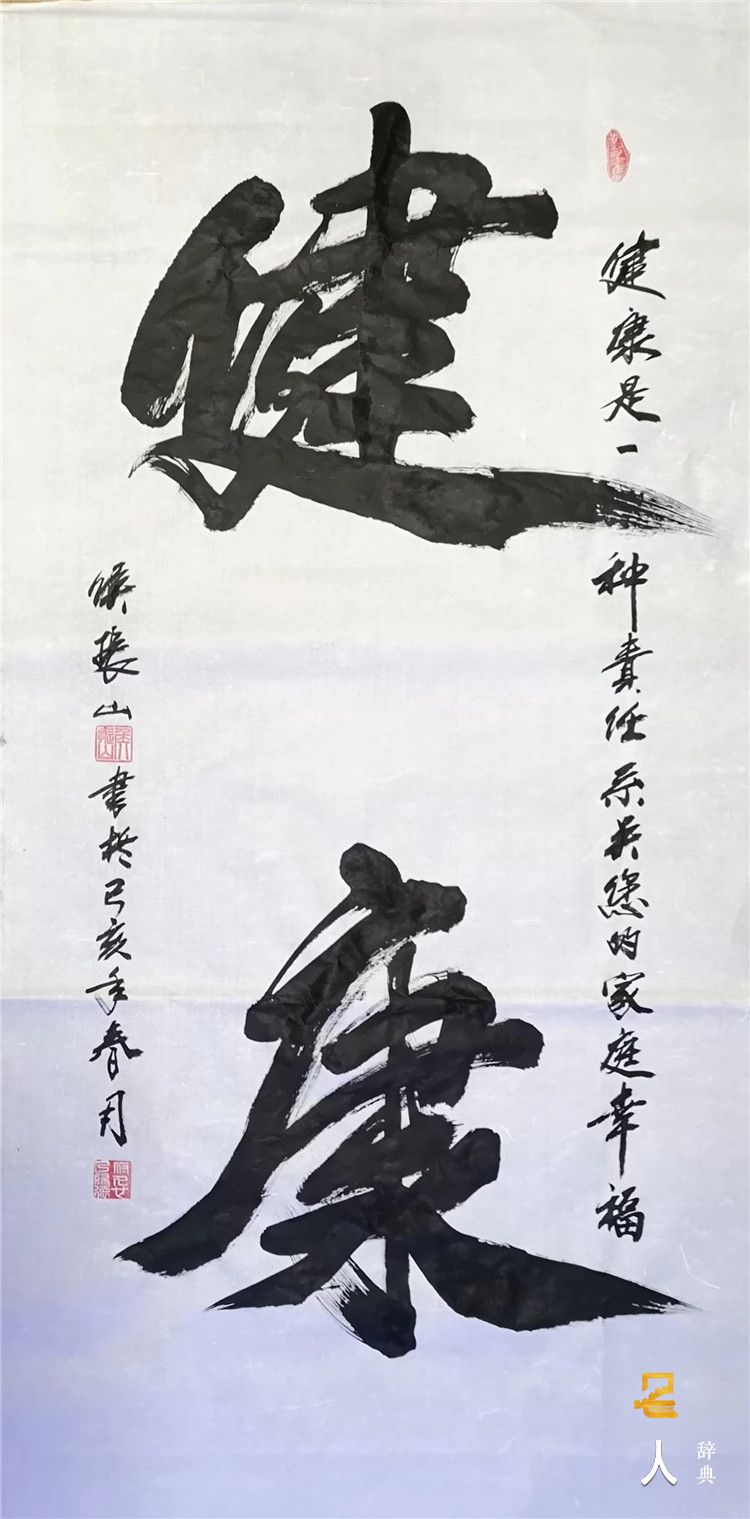 健康
健康是一种责任系关您的家庭幸福
侯振山
书于己亥年春月
名人
辞典